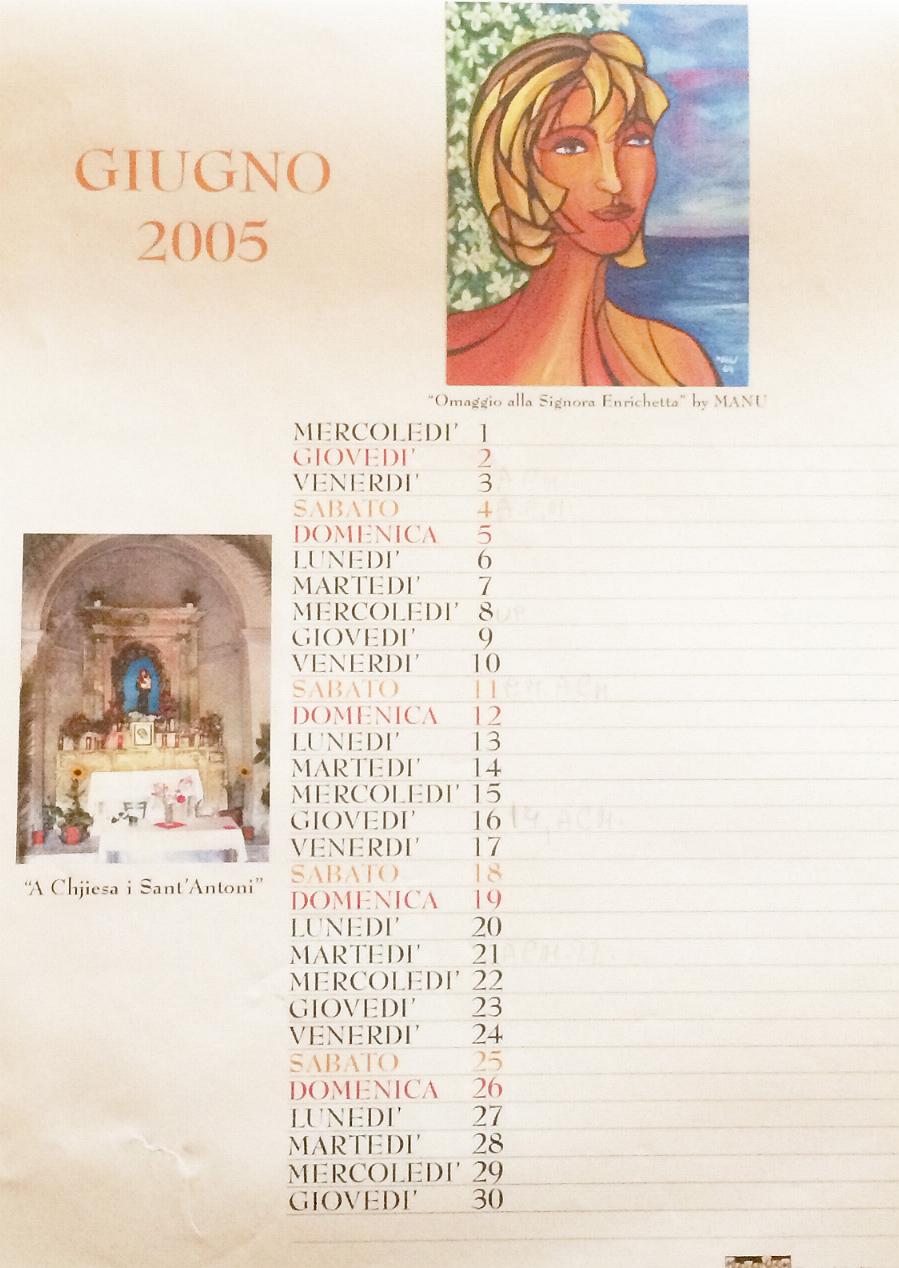 GIUGNO
2005
"Omaggio alla Signora Enrichetta" by MANU
MERCOLEDI' 1
GIOVEDI' 2
VENERDI' 3
SABATO 4
DOMENICA 5
LUNEDI' 6
MARTEDI' 7
MERCOLEDI' 8
GIOVEDI' 9
VENERDI' 10
SABATO 11
DOMENICA 12
LUNEDI' 13
MARTEDI' 14
MERCOLEDI' 15
GIOVEDI' 16
VENERDI' 17
SABATO 18
DOMENICA 19
LUNEDI' 20
MARTEDI' 21
MERCOLEDI' 22
GIOVEDI' 23
VENERDI' 24
SABATO 25
DOMENICA 26
LUNEDI' 27
MARTEDI' 28
MERCOLEDI' 29
GIOVEDI' 30
"A Chjiesa i Sant'Antoni"